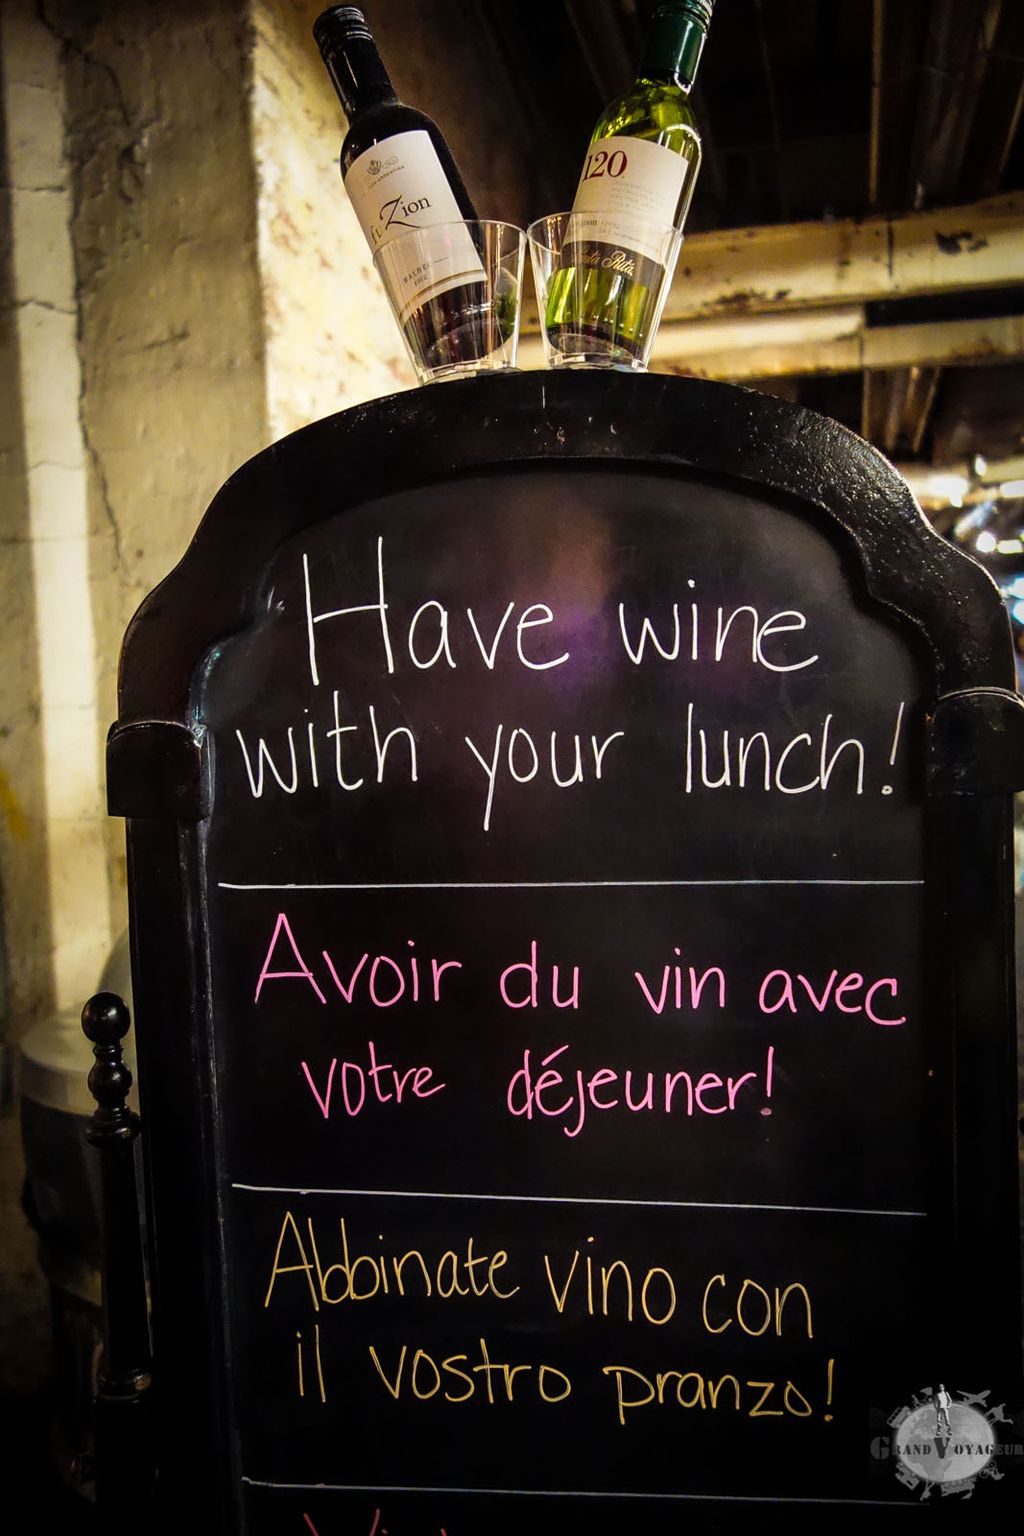 Zion
MALBEC
120
Santa Rita
Have wine
with your lunch!
Avoir du vin avec
votre déjeuner!
Abbinate vino con
il vostro pranzo!
GRAND VOYAGEUR